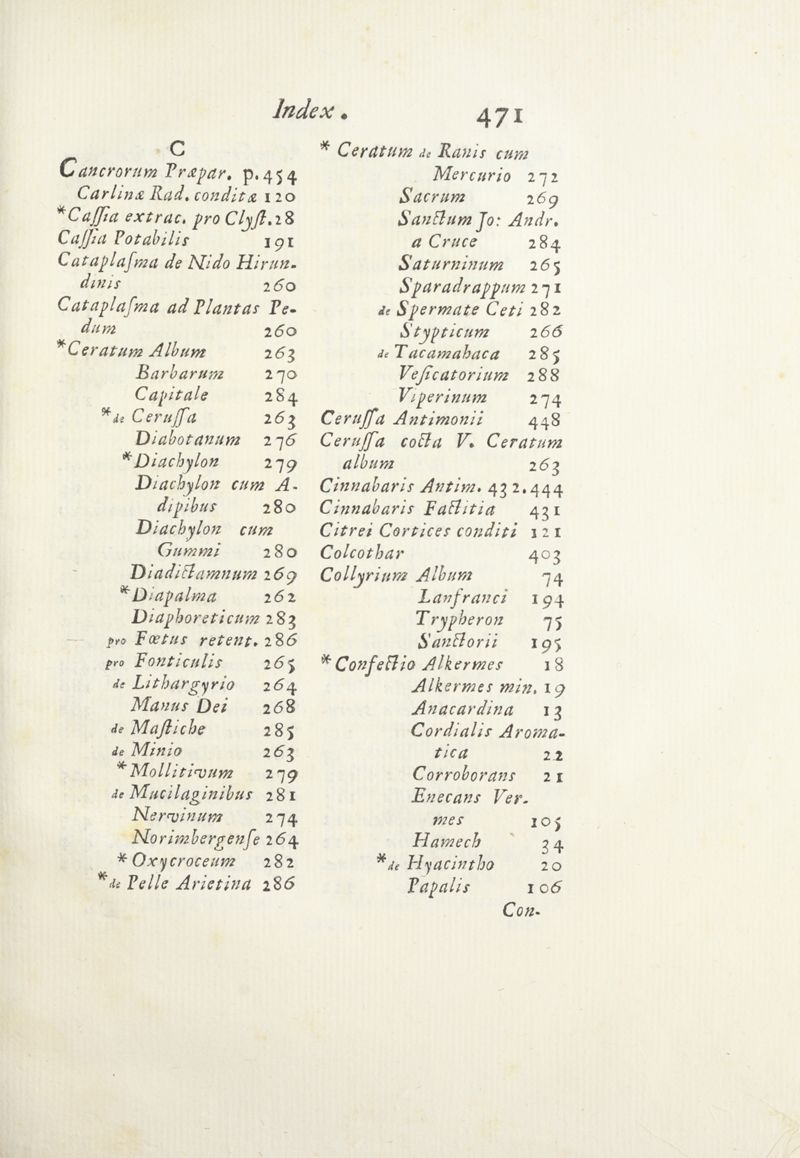 Index. 471
C
Cancrorum Præpar. p.454
Carlinæ Rad. conditæ 120
*Caſſia extrac. pro Clyſt.28
Caſſia Potabilis 191
Cataplaſma de Nido Hirun-
dinis 260
Cataplaſma ad Plantas Pe-
dum 260
*Ceratum Album 263
Barbarum 270
Capitale 284
*de Ceruſſa 263
Diabotanum 276
*Diachylon 279
Diachylon cum A-
dipibus 280
Diachylon cum
Gummi 280
Diadictamnum 269
*Diapalma 262
Diaphoreticum 283
pro Fœtus retent. 286
pro Fonticulis 265
de Lithargyrio 264
Manus Dei 268
de Maſtiche 285
de Minio 263
*Mollitivum 279
de Mucilaginibus 281
Nervinum 274
Norimbergenſe 264
*Oxycroceum 282
*de Pelle Arietina 286
* Ceratum de Ranis cum
Mercurio 272
Sacrum 269
Sanctum Jo: Andr.
a Cruce 284
Saturninum 265
Sparadrappum 271
de Spermate Ceti 282
Stypticum 266
de Tacamahaca 285
Veſicatorium 288
Viperinum 274
Ceruſſa Antimonii 448
Ceruſſa cocta V. Ceratum
album 263
Cinnabaris Antim. 432.444
Cinnabaris Factitia 431
Citrei Cortices conditi 121
Colcothar 403
Collyrium Album 74
Lanfranci 194
Trypheron 75
Sanctorii 195
*Confectio Alkermes 18
Alkermes min. 19
Anacardina 13
Cordialis Aroma-
tica 22
Corroborans 21
Enecans Ver-
mes 105
Hamech 34
*de Hyacintho 20
Papalis 106
Con-